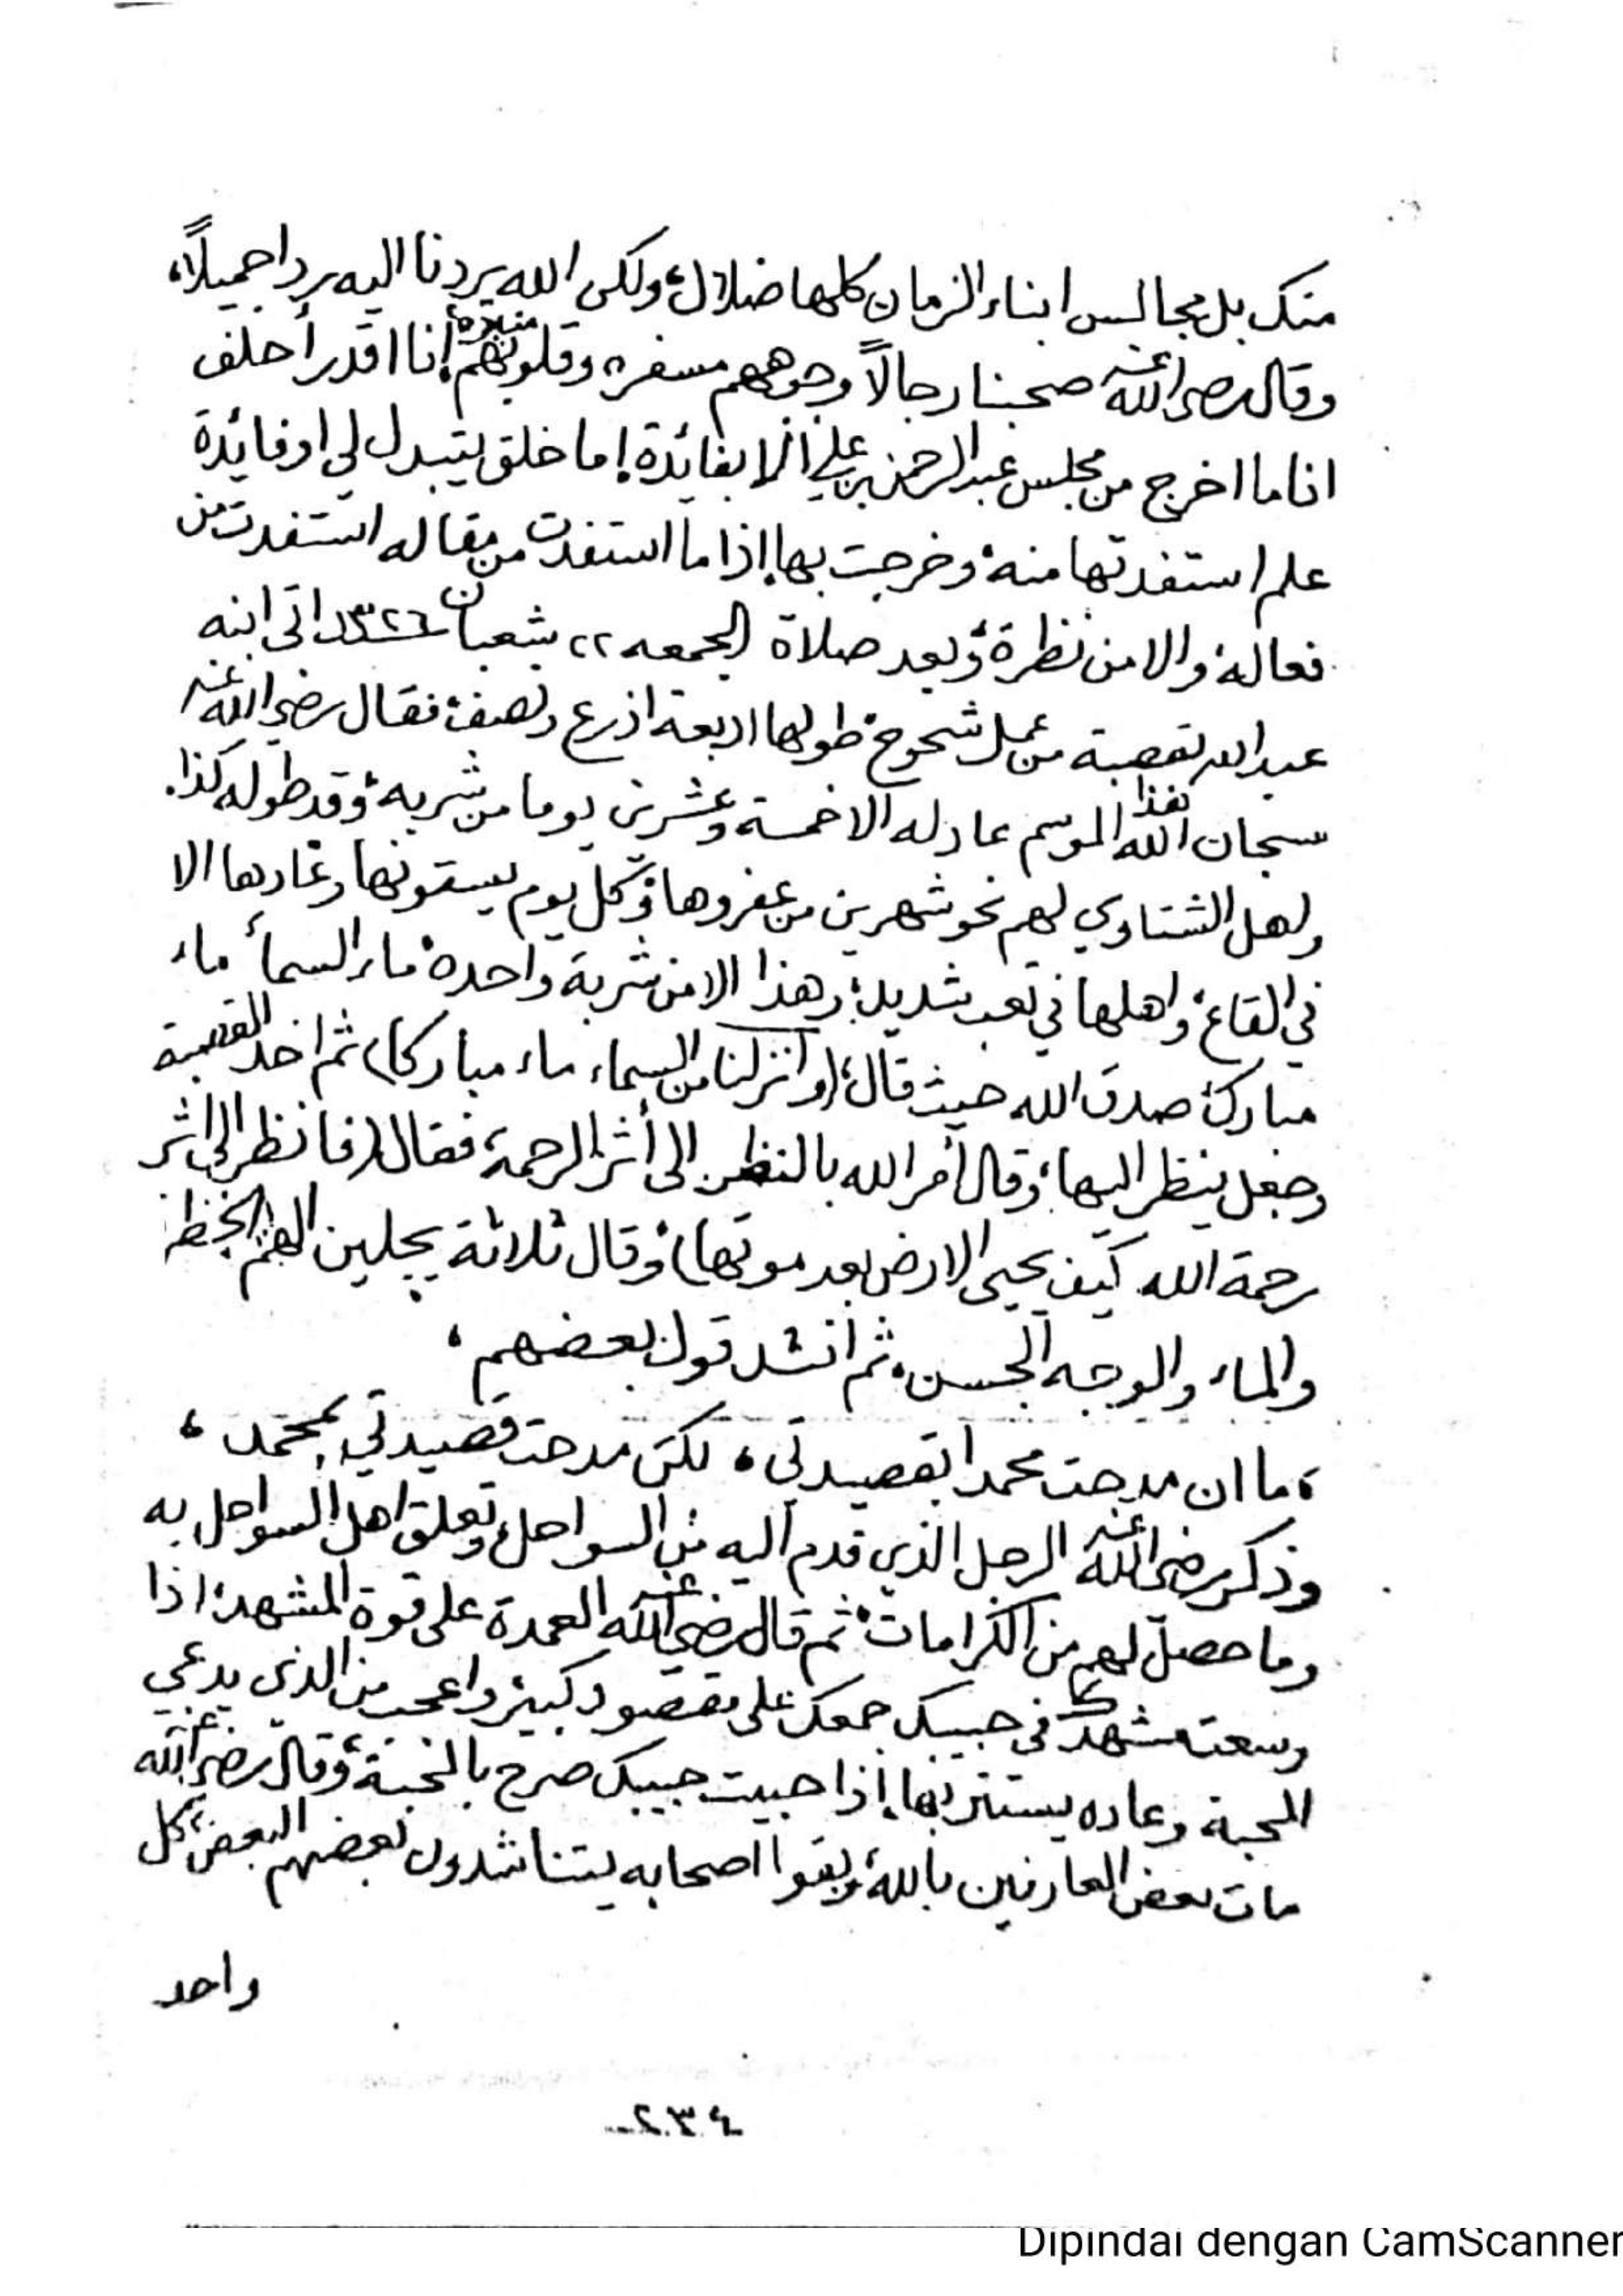 منك بل مجالس ابناء الزمان كلها ضلال، ولكن الله يردنا اليه ردا جميلاً،
وقال رضي الله عنه صحبنا رجالاً وجوههم مسفره وقلوبهم منيرة، أنا اقدر أحلف
انا ما اخرج من مجلس عبد الرحمن بن علي الا بفائدة، إما خلق يتبدل لي او فائدة
علم استفدتها منه وخرجت بها، إذا ما استفدت من مقاله استفدت من
فعاله والا من نظرة، وبعد صلاة الجمعه ٢٢ شعبان ١٣٢٦ اتى ابنه
عبد الله بقصبة من عمل شحوح، طولها اربعة اذرع ونصف، فقال رضي الله عنه
سبحان الله هذا الموسم عادله الا خمسة وعشرين يوما من شربه، وقد طوله كذا.
ولهل الشتاوي لهم نحو شهرين من عفروها وكل يوم يسقونها وعادها الا
في القاع، واهلها في تعب شديد، وهذا الا من شربة واحده، ماء السمأ ماء
مبارك، صدق الله حيث قال، (وأنزلنا من السماء ماء مباركا) ثم اخذ القصبة
وجعل ينظر اليها، وقال أمر الله بالنظر الى أثر الرحمة، فقال (فانظر الى اثر
رحمة الله كيف يحيى الارض بعد موتها)، وقال ثلاثة يجلين الهم الخضرة
والماء والوجه الحسن، ثم أنشد قول بعضهم،
، ما ان مدحت محمدا بقصيدتي ، لكن مدحت قصيدتي بمحمد ،
وذكر رضي الله عنه الرجل الذي قدم اليه من السواحل، وتعلق اهل السواحل به
وما حصل لهم من الكرامات، ثم قال رضي الله عنه العمدة على قوة المشهد، اذا
وسعت مشهدك في حبيبك جمعك على مقصود كبير، واعجب من الذي يدعي
المحبة وعاده يستتر بها، إذا حبيت حبيبك صرح بالمحبة، وقال رضي الله عنه
مات بعض العارفين بالله، وبقوا اصحابه يتناشدون بعضهم البعض، كل
واحد
٢٣٤
Dipindai dengan CamScanner